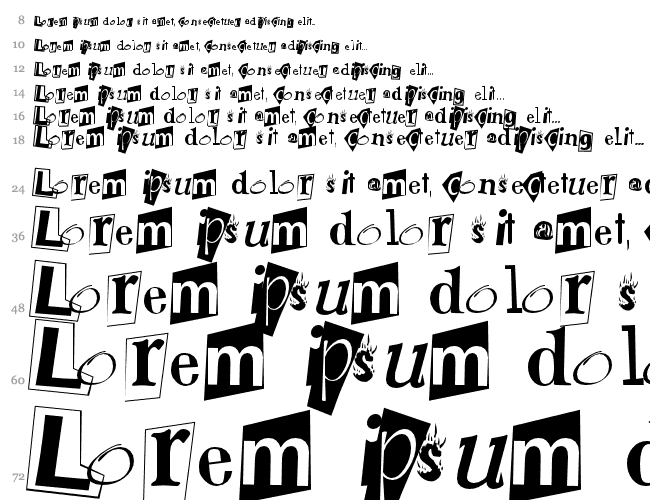 8 Lorem ipsum dolor sit amet, consectetuer adipiscing elit...
10 Lorem ipsum dolor sit amet, consectetuer adipiscing elit...
12 Lorem ipsum dolor sit amet, consectetuer adipiscing elit...
14 Lorem ipsum dolor sit amet, consectetuer adipiscing elit...
16 Lorem ipsum dolor sit amet, consectetuer adipiscing elit...
18 Lorem ipsum dolor sit amet, consectetuer adipiscing elit...
24 Lorem ipsum dolor sit amet, consectetuer a
36 Lorem ipsum dolor sit amet,
48 Lorem ipsum dolor s
60 Lorem ipsum dol
72 Lorem ipsum d